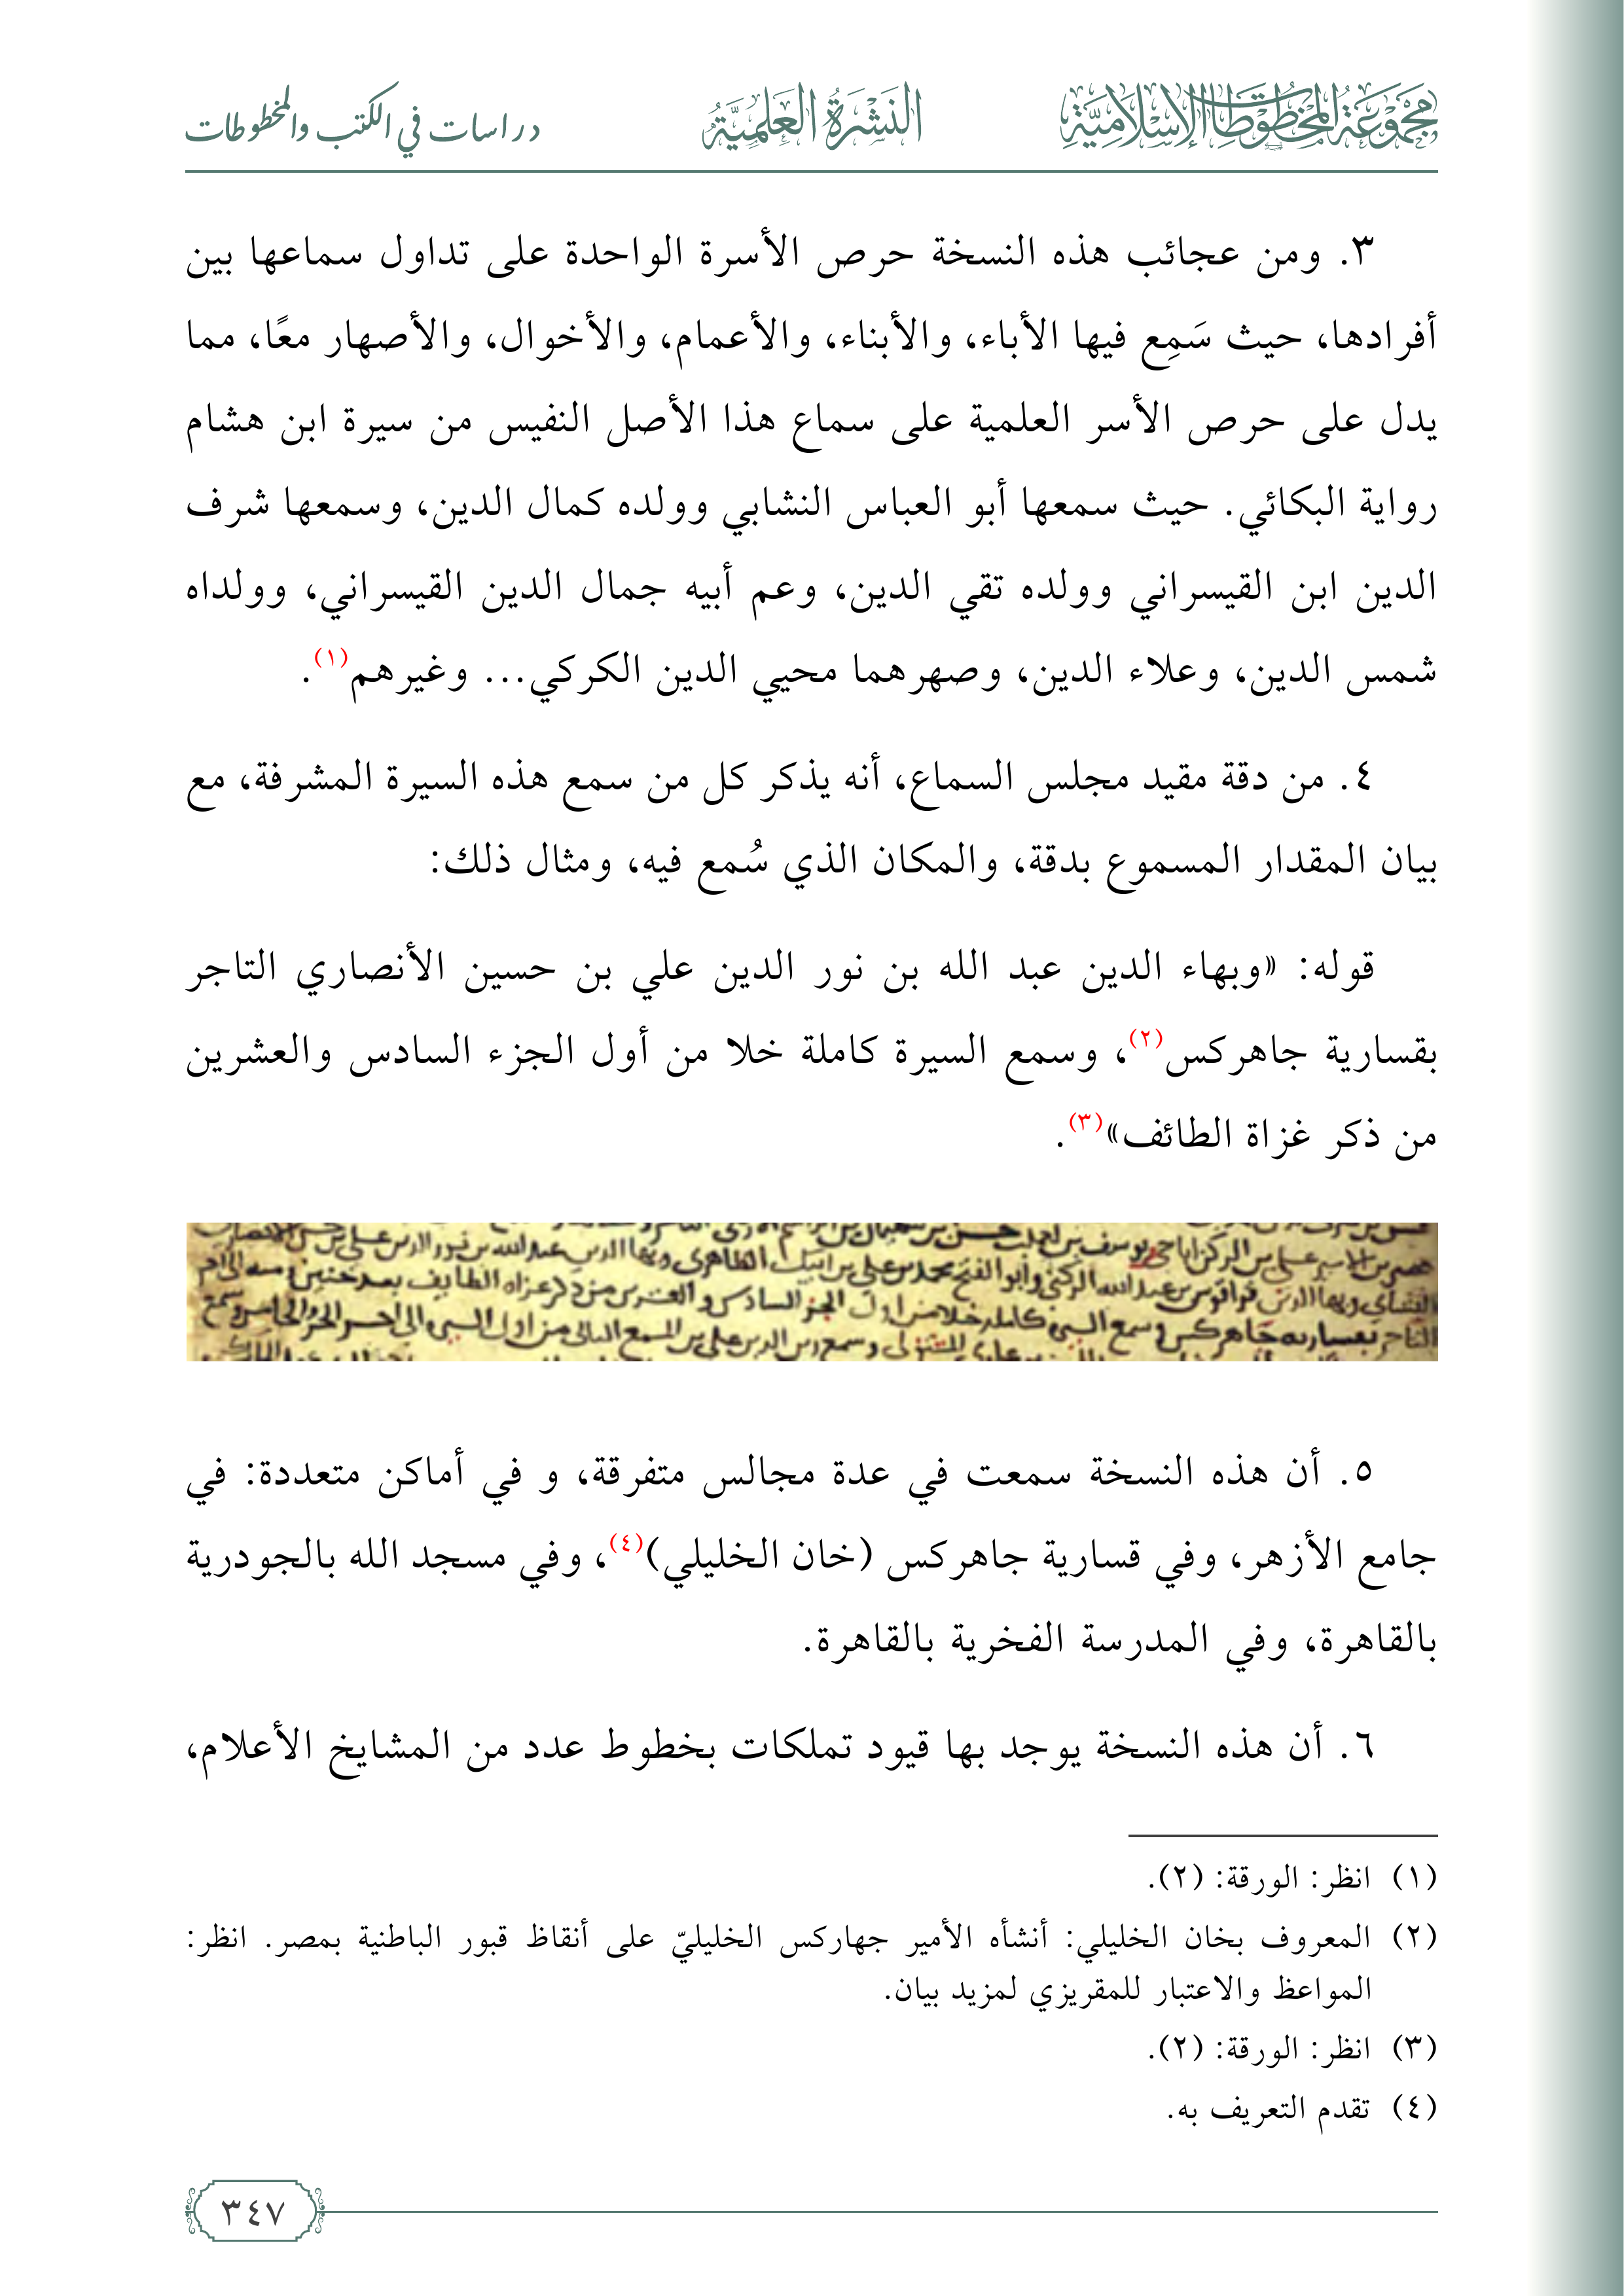 مجموعة المخطوطات الإسلامية
النشرة العلمية
دراسات في الكتب والمخطوطات
٣. ومن عجائب هذه النسخة حرص الأسرة الواحدة على تداول سماعها بين
أفرادها، حيث سَمِع فيها الأباء، والأبناء، والأعمام، والأخوال، والأصهار معًا، مما
يدل على حرص الأسر العلمية على سماع هذا الأصل النفيس من سيرة ابن هشام
رواية البكائي. حيث سمعها أبو العباس النشابي وولده كمال الدين، وسمعها شرف
الدين ابن القيسراني وولده تقي الدين، وعم أبيه جمال الدين القيسراني، وولداه
شمس الدين، وعلاء الدين، وصهرهما محيي الدين الكركي... وغيرهم(١).
٤. من دقة مقيد مجلس السماع، أنه يذكر كل من سمع هذه السيرة المشرفة، مع
بيان المقدار المسموع بدقة، والمكان الذي سُمع فيه، ومثال ذلك:
قوله: «وبهاء الدين عبد الله بن نور الدين علي بن حسين الأنصاري التاجر
بقسارية جاهركس(٢)، وسمع السيرة كاملة خلا من أول الجزء السادس والعشرين
من ذكر غزاة الطائف»(٣).
٥. أن هذه النسخة سمعت في عدة مجالس متفرقة، و في أماكن متعددة: في
جامع الأزهر، وفي قسارية جاهركس (خان الخليلي)(٤)، وفي مسجد الله بالجودرية
بالقاهرة، وفي المدرسة الفخرية بالقاهرة.
٦. أن هذه النسخة يوجد بها قيود تملكات بخطوط عدد من المشايخ الأعلام،
(١) انظر: الورقة: (٢).
(٢) المعروف بخان الخليلي: أنشأه الأمير جهاركس الخليليّ على أنقاظ قبور الباطنية بمصر. انظر:
المواعظ والاعتبار للمقريزي لمزيد بيان.
(٣) انظر: الورقة: (٢).
(٤) تقدم التعريف به.
٣٤٧